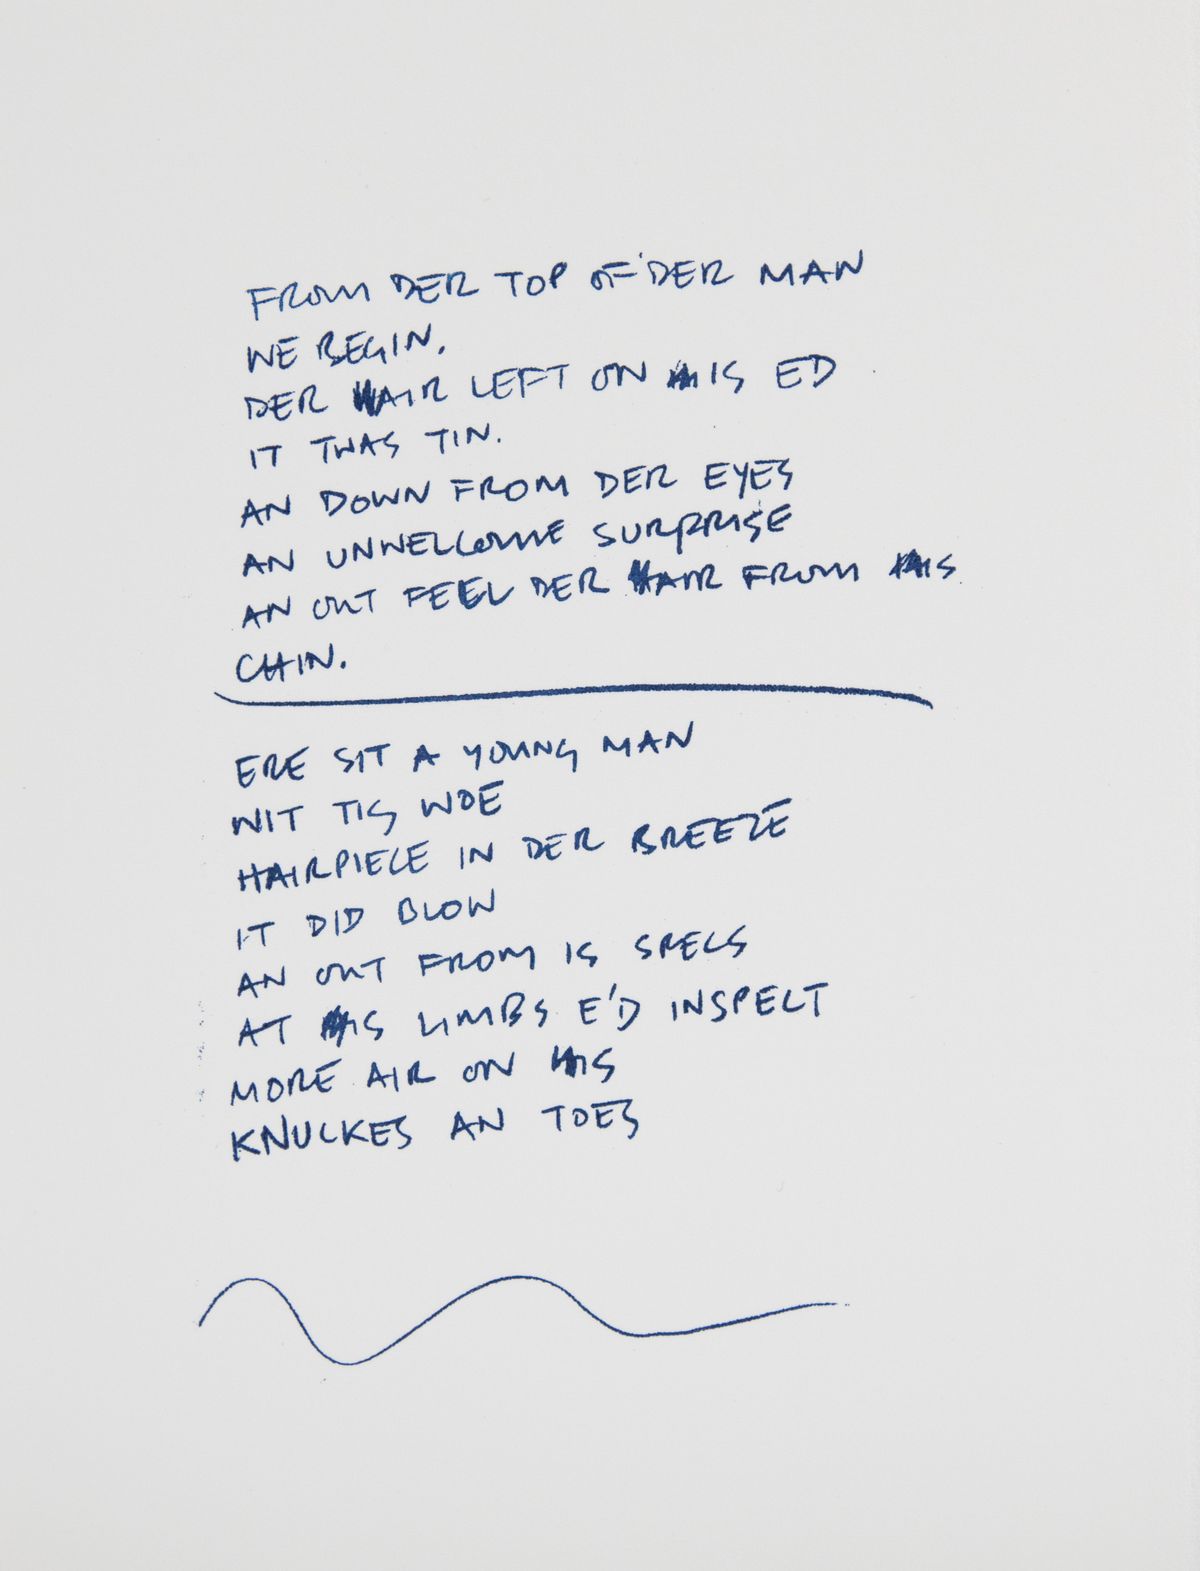 FROM DER TOP OF DER MAN
WE BEGIN.
DER AIR LEFT ON IS ED
IT TWAS TIN.
AN DOWN FROM DER EYES
AN UNWELCOME SURPRISE
AN OUT FEEL DER AIR FROM IS
CHIN.
ERE SIT A YOUNG MAN
WIT TIS WOE
HAIRPIECE IN DER BREEZE
IT DID BLOW
AN OUT FROM IS SPECS
AT IS LIMBS E'D INSPECT
MORE AIR ON IS
KNUCKES AN TOES